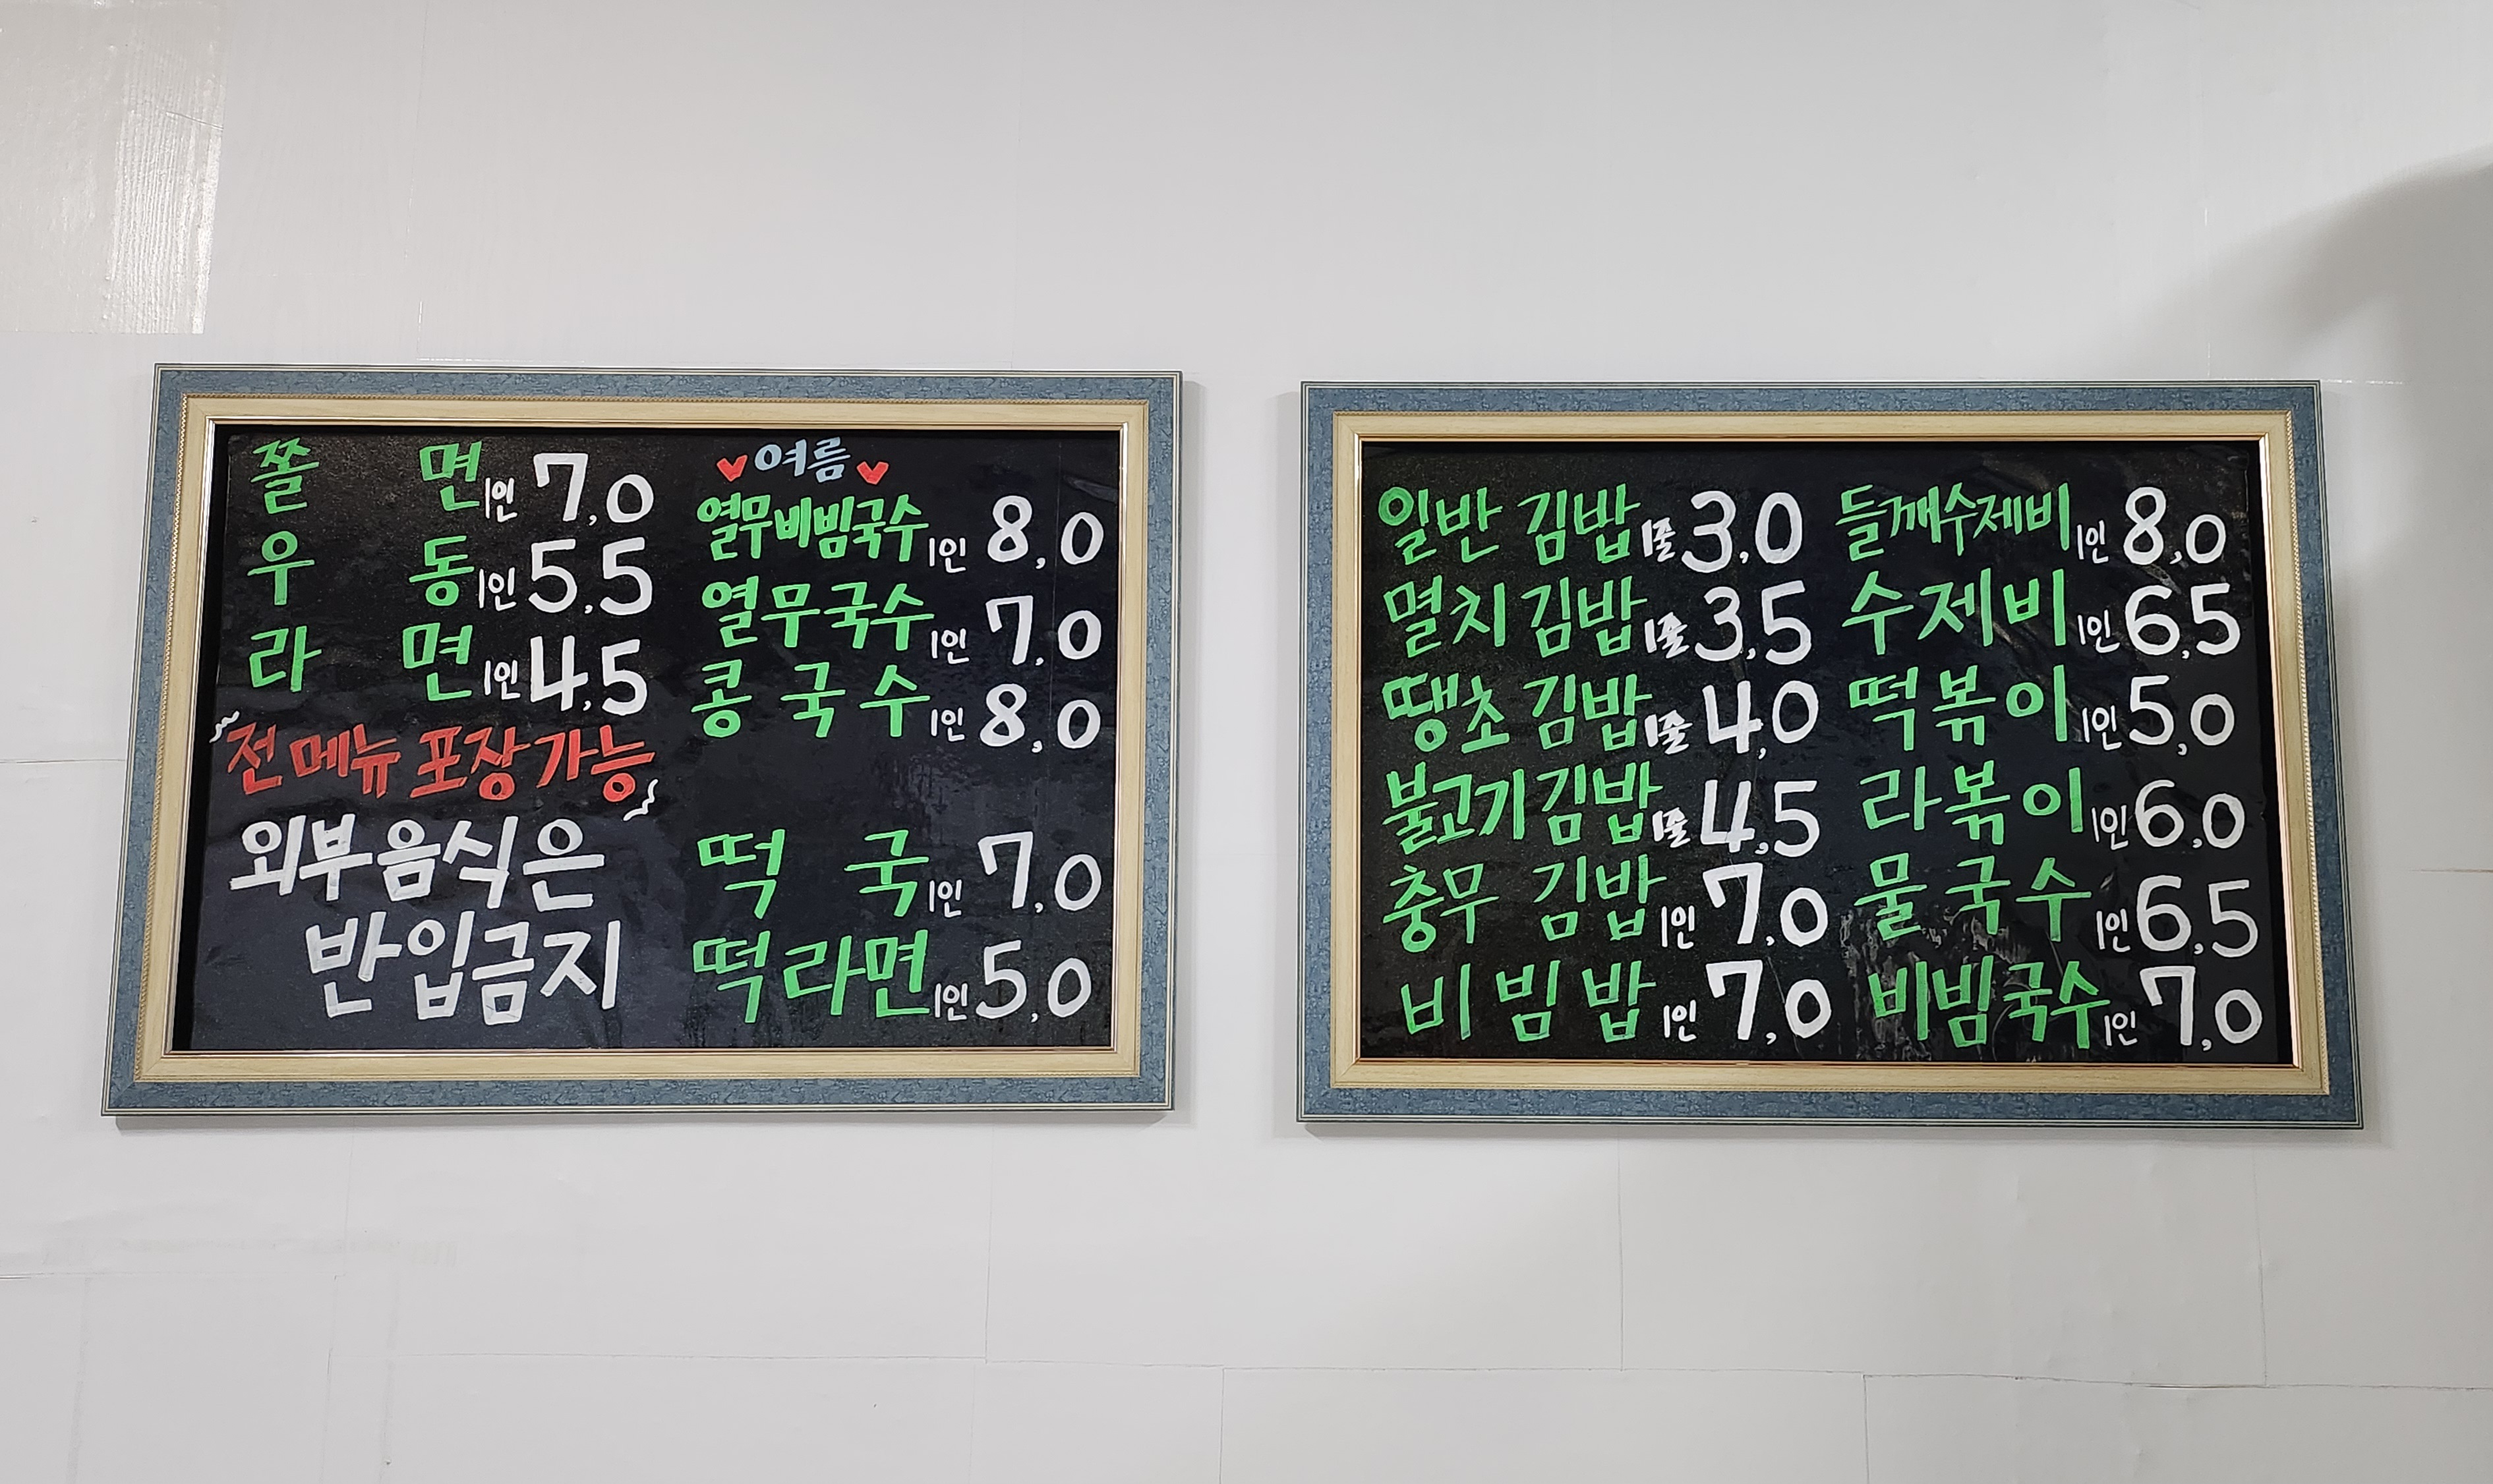 쫄 면 1인 7,0
우 동 1인 5,5
라 면 1인 4,5
전메뉴 포장가능
외부음식은
반입금지
♥여름♥
열무비빔국수 1인 8,0
열무국수 1인 7,0
콩국수 1인 8,0
떡 국 1인 7,0
떡라면 1인 5,0
일반 김밥 1줄 3,0
멸치김밥 1줄 3,5
땡초김밥 1줄 4,0
불고기김밥 1줄 4,5
충무 김밥 1인 7,0
비빔밥 1인 7,0
들깨수제비 1인 8,0
수제비 1인 6,5
떡볶이 1인 5,0
라볶이 1인 6,0
물국수 1인 6,5
비빔국수 1인 7,0